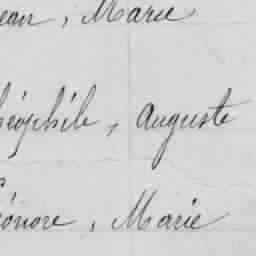 ean, Marie
héophile, Auguste
éonore, Marie